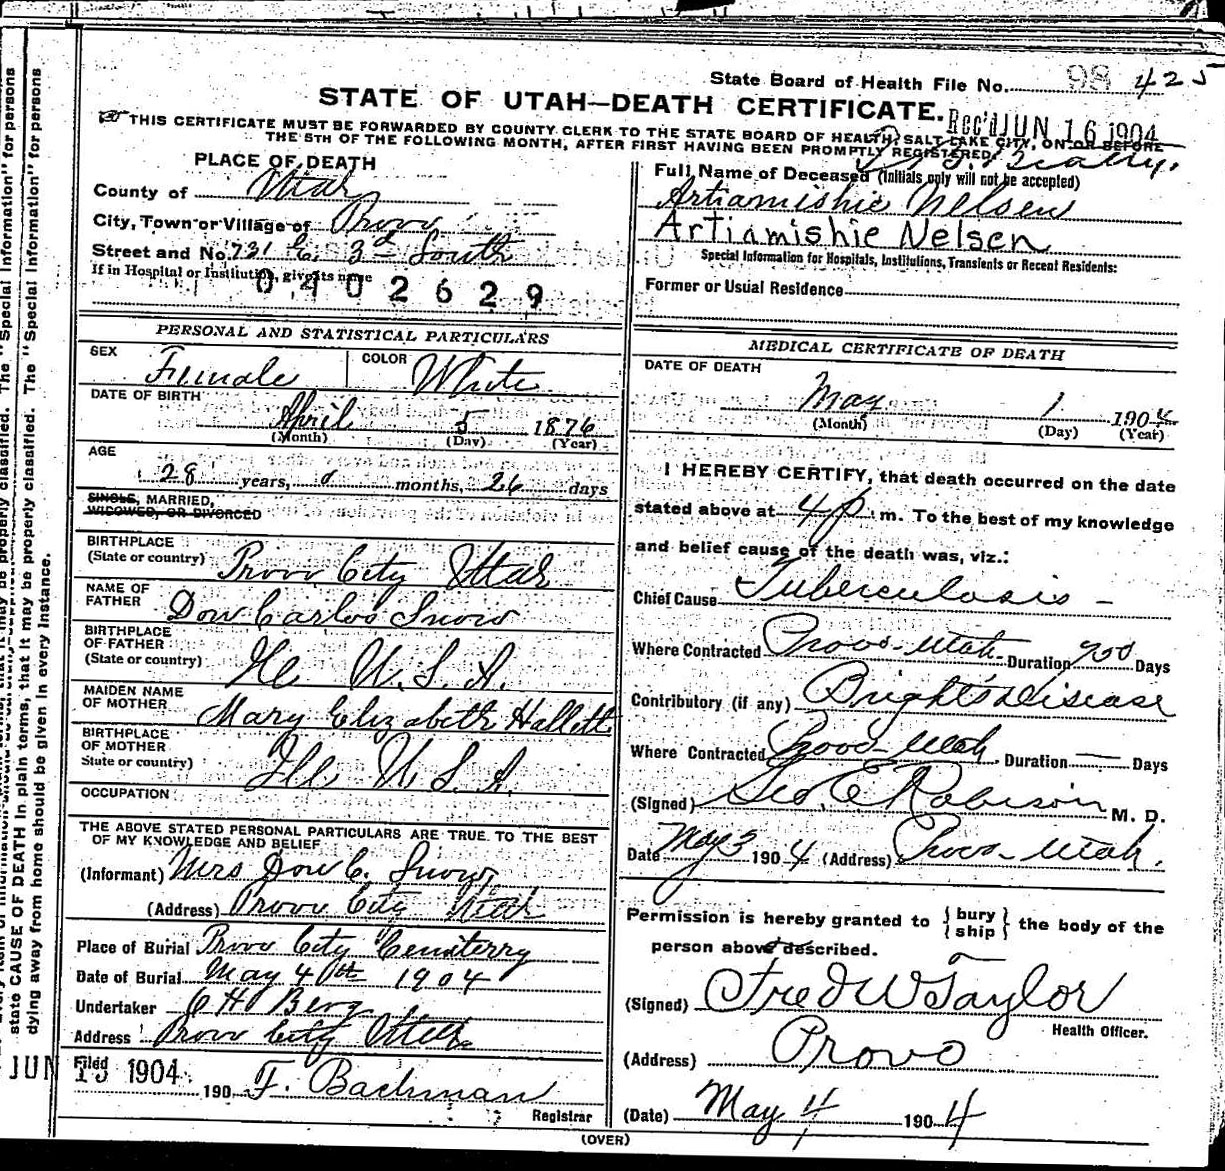 State Board of Health File No. 98 425
STATE OF UTAH—DEATH CERTIFICATE.
Rec'd JUN 16 1904
THIS CERTIFICATE MUST BE FORWARDED BY COUNTY CLERK TO THE STATE BOARD OF HEALTH, SALT LAKE CITY, ON OR BEFORE
THE 5TH OF THE FOLLOWING MONTH, AFTER FIRST HAVING BEEN PROMPTLY REGISTERED.
PLACE OF DEATH
County of Utah
City, Town or Village of Provo
Street and No. 731 E. 3rd South
If in Hospital or Institution, give its name
0402629
Full Name of Deceased (Initials only will not be accepted)
Artiamishie Nelsen
Artiamishie Nelsen
Special Information for Hospitals, Institutions, Transients or Recent Residents:
Former or Usual Residence
PERSONAL AND STATISTICAL PARTICULARS
SEX Female COLOR White
DATE OF BIRTH
April 5 1876
(Month) (Day) (Year)
AGE
28 years, 0 months, 26 days
SINGLE, MARRIED,
WIDOWED, OR DIVORCED
BIRTHPLACE
(State or country) Provo City Utah
NAME OF
FATHER Don Carlos Snow
BIRTHPLACE
OF FATHER
(State or country) Ill U. S. A.
MAIDEN NAME
OF MOTHER Mary Elizabeth Hallett
BIRTHPLACE
OF MOTHER
State or country) Ill U. S. A.
OCCUPATION
THE ABOVE STATED PERSONAL PARTICULARS ARE TRUE TO THE BEST
OF MY KNOWLEDGE AND BELIEF
(Informant) Mrs Don C. Snow
(Address) Provo City Utah
Place of Burial Provo City Cemeterry
Date of Burial May 4th 1904
Undertaker O H Berg
Address Provo City Utah
Filed JUN 15 1904 190
F. Bachman
Registrar
MEDICAL CERTIFICATE OF DEATH
DATE OF DEATH
May 1 1904
(Month) (Day) (Year)
I HEREBY CERTIFY, that death occurred on the date
stated above at 4 p. m. To the best of my knowledge
and belief cause of the death was, viz.:
Chief Cause Tuberculosis
Where Contracted Provo-Utah Duration 900 Days
Contributory (if any) Bright's Disease
Where Contracted Provo-Utah. Duration — Days
(Signed) Geo. E Robison M. D.
Date May 3 1904 (Address) Provo-Utah.
Permission is hereby granted to {bury
ship} the body of the
person above described.
(Signed) Fred W Taylor
Health Officer.
(Address) Provo
(Date) May 4 1904
(OVER)
state CAUSE OF DEATH in plain terms, that it may be properly classified. The "Special Information" for persons
dying away from home should be given in every instance.